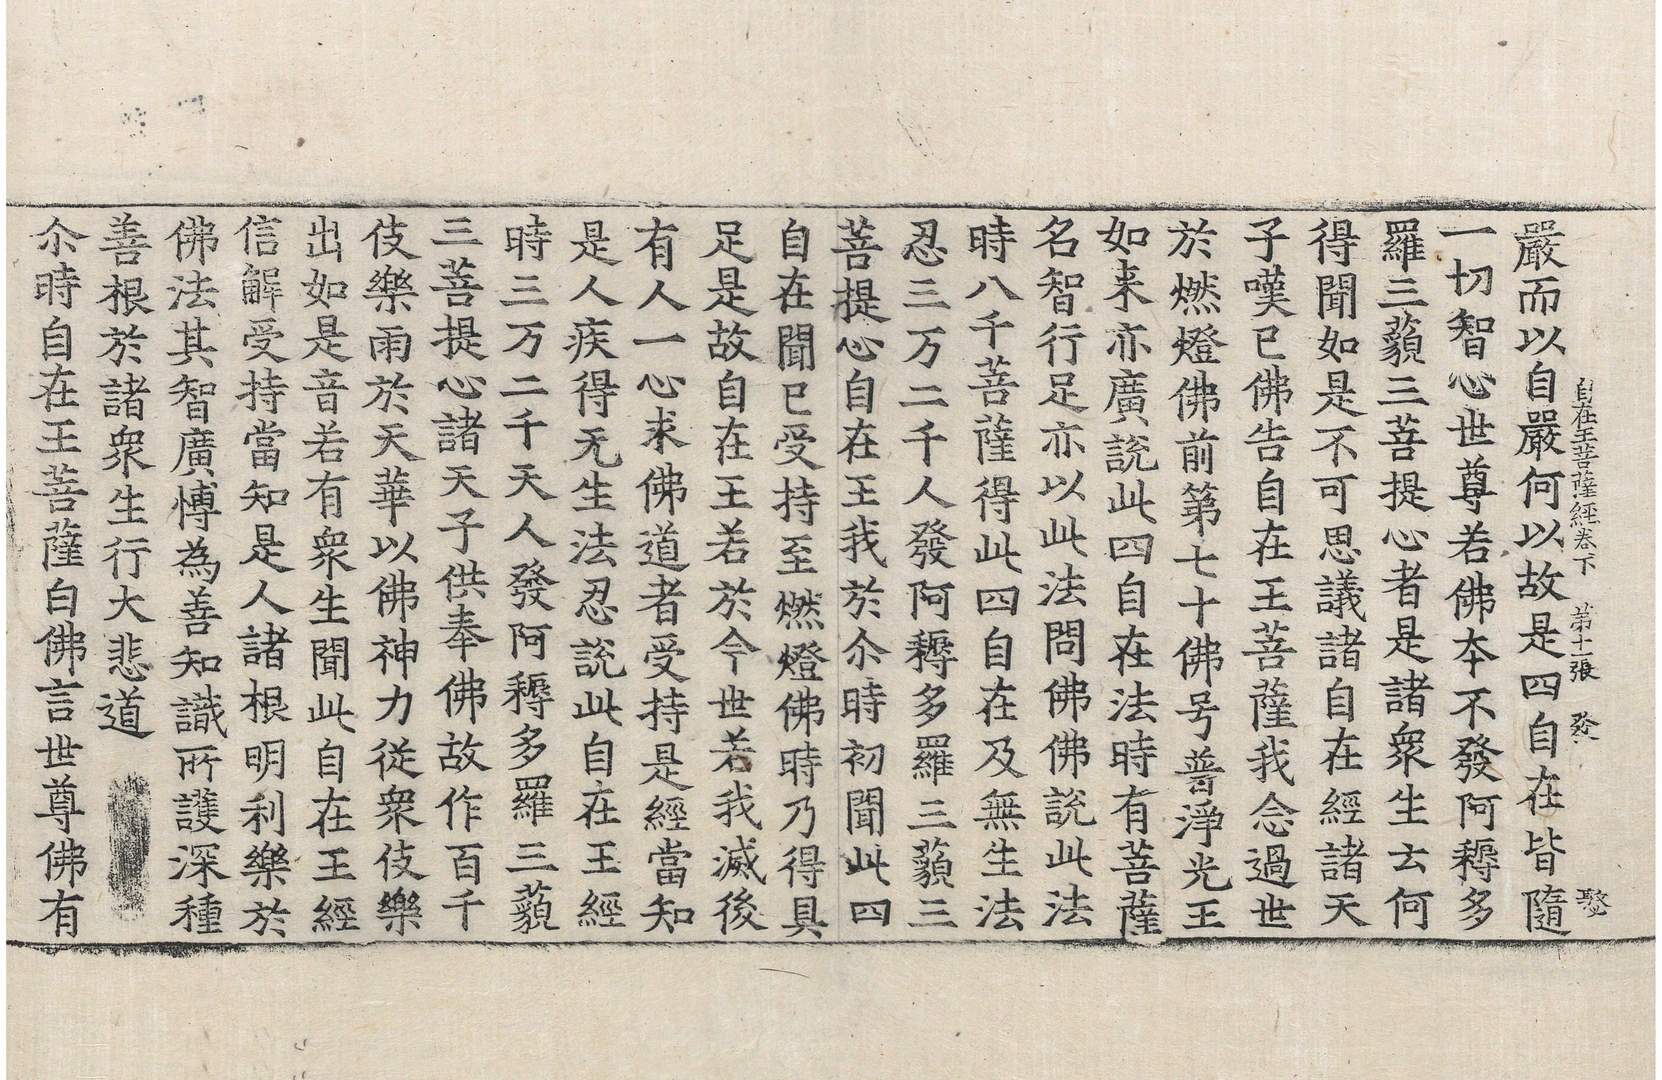 自在王菩薩經卷下 第十一張 發
嚴而以自嚴何以故是四自在皆隨
一切智心世尊若佛夲不發阿耨多
羅三藐三菩提心者是諸衆生云何
得聞如是不可思議諸自在經諸天
子嘆已佛告自在王菩薩我念過世
於燃燈佛前第七十佛号普淨光王
如来亦廣說此四自在法時有菩薩
名智行足亦以此法問佛佛說此法
時八千菩薩得此四自在及無生法
忍三万二千人發阿耨多羅三藐三
菩提心自在王我於尒時初聞此四
自在聞已受持至燃燈佛時乃得具
足是故自在王若於今世若我滅後
有人一心求佛道者受持是經當知
是人疾得无生法忍說此自在王經
時三万二千天人發阿耨多羅三藐
三菩提心諸天子供奉佛故作百千
伎樂雨於天華以佛神力從衆伎樂
出如是音若有衆生聞此自在王經
信解受持當知是人諸根明利樂於
佛法其智廣愽為善知識所護深種
善根於諸衆生行大悲道
尒時自在王菩薩白佛言世尊佛有